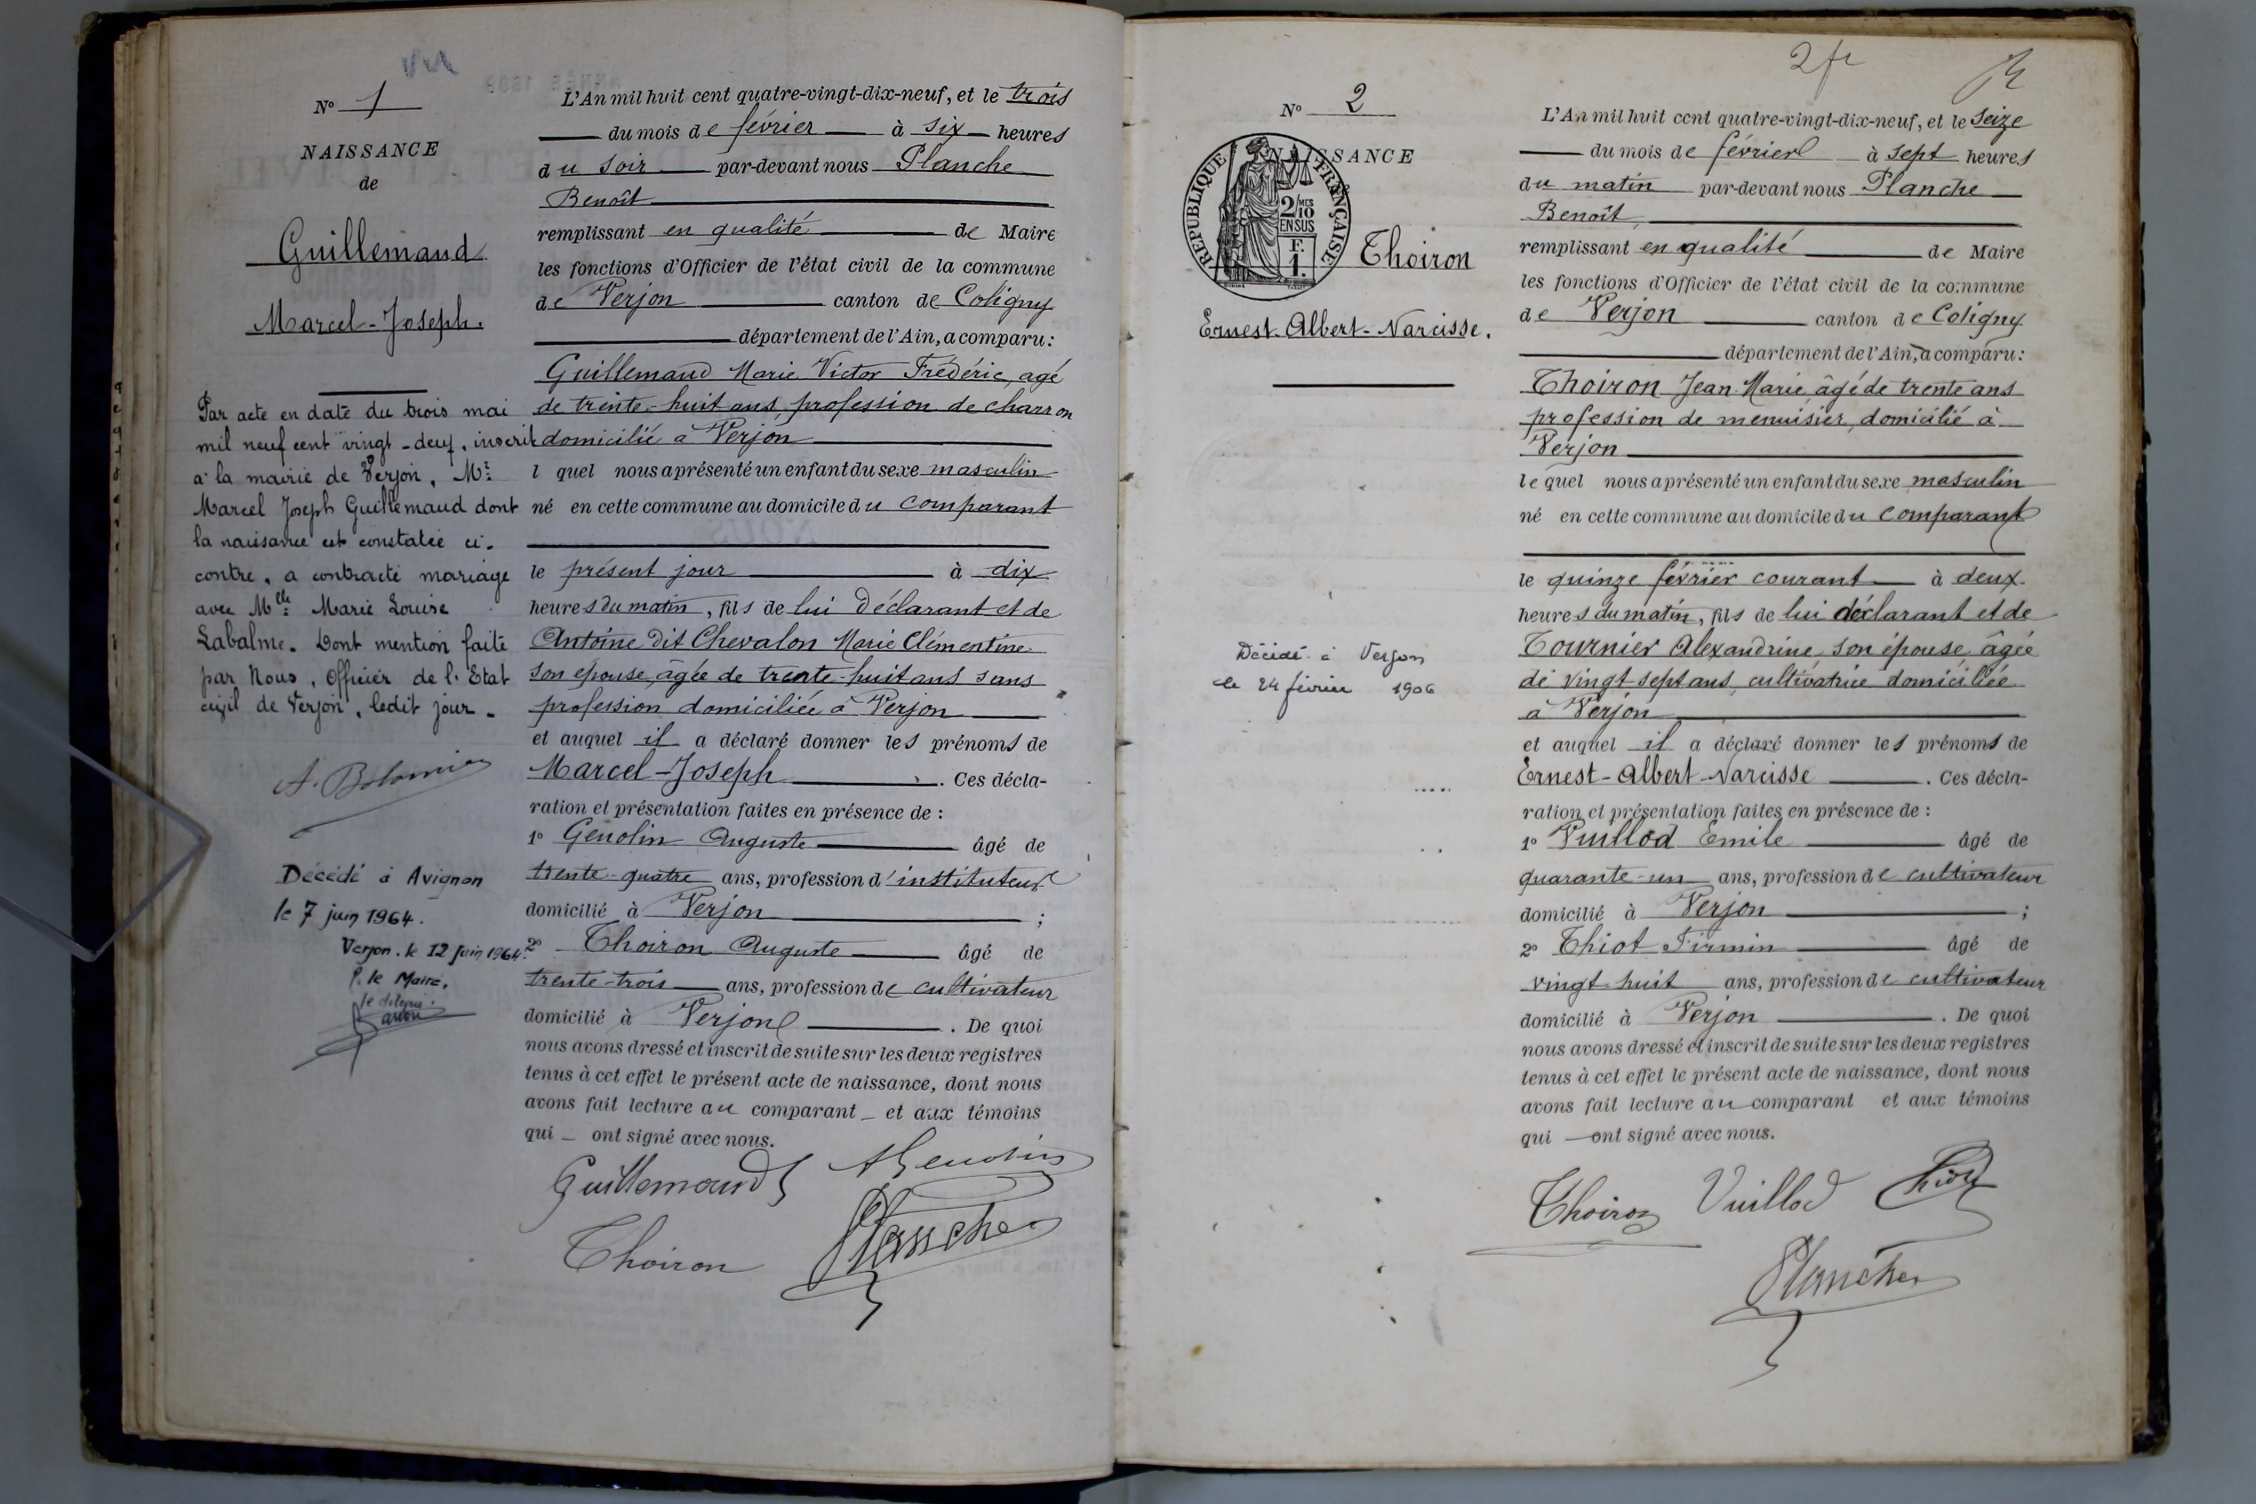 N° 1
NAISSANCE
de
Guillemaud
Marcel-Joseph.
Par acte en date du trois mai
mil neuf cent vingt-deux, inscrit
à la mairie de Verjon, Mr
Marcel Joseph Guillemaud dont
la naissance est constatée ci-
contre, a contracté mariage
avec Mlle Marie Louise
Labalme. Dont mention faite
par Nous, Officier de l'Etat
civil de Verjon, ledit jour.
Décédé à Avignon
le 7 juin 1964.
Verjon. le 12 juin 1964.
P. le Maire,
L'An mil huit cent quatre-vingt-dix-neuf, et le trois
du mois de février à six heures
du soir par-devant nous Planche
Benoît
remplissant en qualité de Maire
les fonctions d'Officier de l'état civil de la commune
de Verjon canton de Coligny
département de l'Ain, a comparu :
Guillemaud Marie Victor Frédéric, agé
de trente-huit ans, profession de charron
domicilié à Verjon
l quel nous a présenté un enfant du sexe masculin
né en cette commune au domicile du comparant
le présent jour à dix
heures du matin, fils de lui déclarant et de
Antoine dit Chevalon Marie Clémentine
son épouse, âgée de trente-huit ans sans
profession domiciliée à Verjon
et auquel il a déclaré donner les prénoms de
Marcel-Joseph. Ces décla-
ration et présentation faites en présence de :
1° Genolin Auguste âgé de
trente-quatre ans, profession d'instituteur
domicilié à Verjon ;
2° Thoiron Auguste âgé de
trente-trois ans, profession de cultivateur
domicilié à Verjon. De quoi
nous avons dressé et inscrit de suite sur les deux registres
tenus à cet effet le présent acte de naissance, dont nous
avons fait lecture au comparant et aux témoins
qui ont signé avec nous.
Guillemaud AGenolin
Thoiron Planche
2 fr
N° 2
NAISSANCE
REPUBLIQUE FRANÇAISE
2/10 MES
EN SUS
F.
1.
Thoiron
Ernest-Albert-Narcisse.
Décédé à Verjon
le 24 février 1906
L'An mil huit cent quatre-vingt-dix-neuf, et le seize
du mois de février à sept heures
du matin par-devant nous Planche
Benoît
remplissant en qualité de Maire
les fonctions d'Officier de l'état civil de la commune
de Verjon canton de Coligny
département de l'Ain, a comparu :
Thoiron Jean Marie âgé de trente ans
profession de menuisier, domicilié à
Verjon
lequel nous a présenté un enfant du sexe masculin
né en cette commune au domicile du comparant
le quinze février courant à deux
heures du matin, fils de lui déclarant et de
Tournier Alexandrine son épouse, âgée
de vingt-sept ans, cultivatrice domiciliée
à Verjon
et auquel il a déclaré donner les prénoms de
Ernest-Albert-Narcisse. Ces décla-
ration et présentation faites en présence de :
1° Vuillod Emile âgé de
quarante-un ans, profession de cultivateur
domicilié à Verjon ;
2° Thiot Firmin âgé de
vingt-huit ans, profession de cultivateur
domicilié à Verjon. De quoi
nous avons dressé et inscrit de suite sur les deux registres
tenus à cet effet le présent acte de naissance, dont nous
avons fait lecture au comparant et aux témoins
qui ont signé avec nous.
Thoiron Vuillod Thiot
Planche